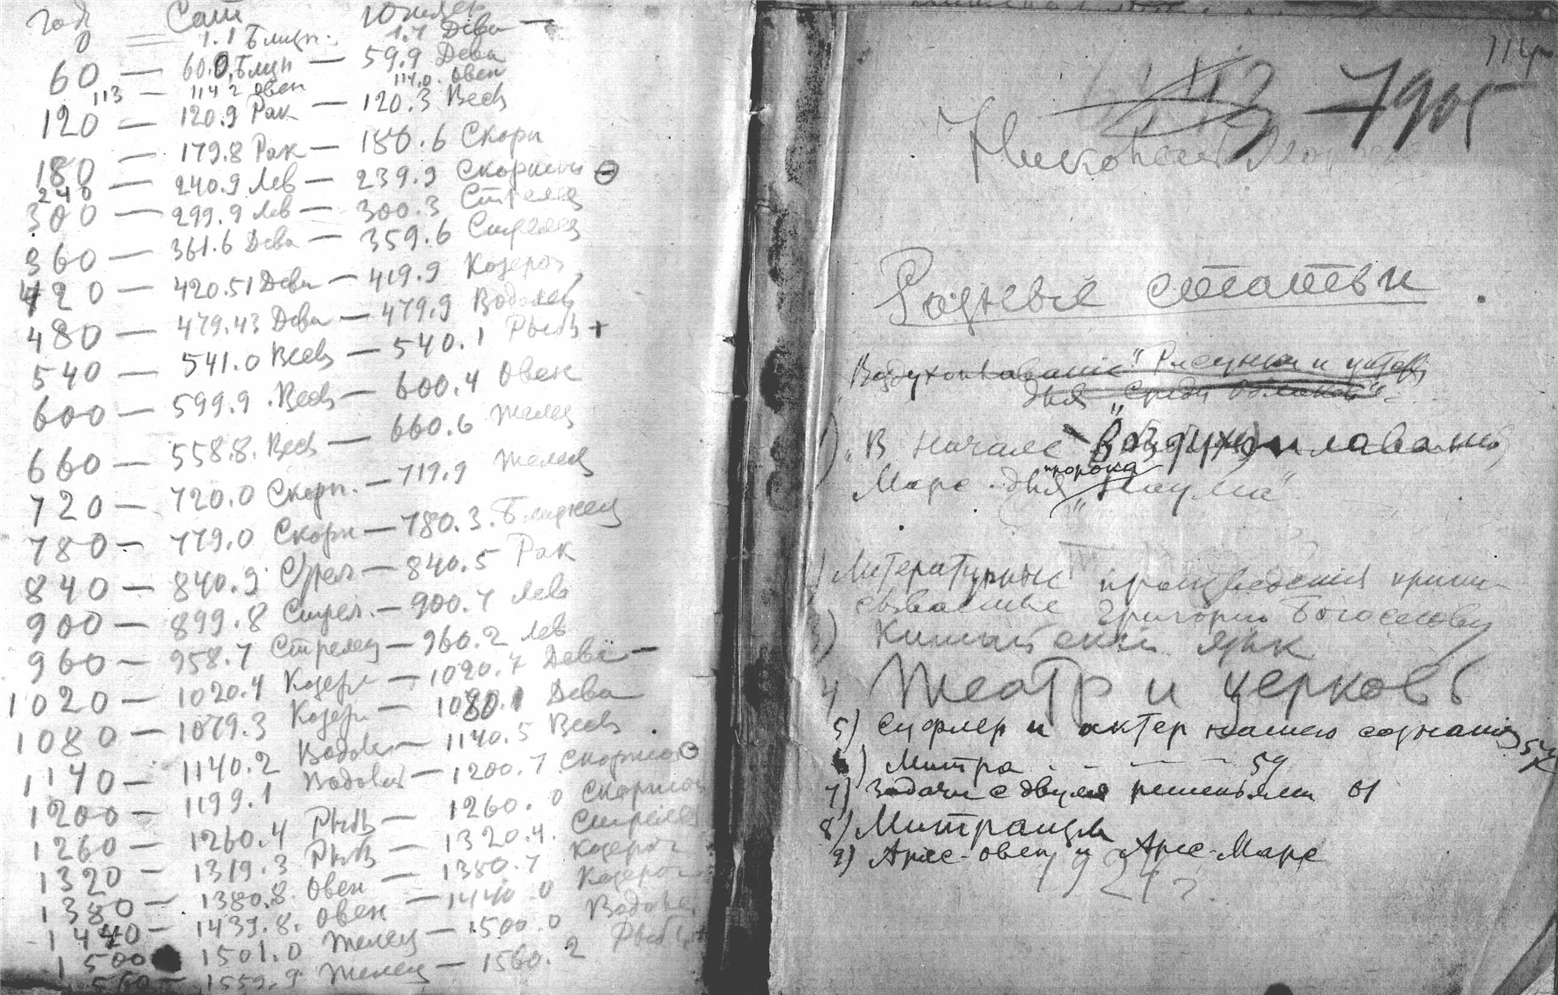 год Сат Юпитер
0 = 1.1 Близн. — 1.1 Дева —
60 — 60.0 Близн — 59.9 Дева
113 — 114.2 Овен 114.0 Овен
120 — 120.9 Рак — 120.3 Весы
180 — 179.8 Рак — 180.6 Скорп
240 — 240.9 Лев — 239.9 Скорпион
300 — 299.9 Лев — 300.3 Стрелец
360 — 361.6 Дева — 359.6 Стрелец
420 — 420.51 Дева — 419.9 Козерог
480 — 479.43 Дева — 479.9 Водолей
540 — 541.0 Весы — 540.1 Рыбы +
600 — 599.9 Весы — 600.4 Овен
660 — 558.8. Весы — 660.6 Телец
720 — 720.0 Скорп. — 719.9 Телец
780 — 779.0 Скорп — 780.3. Близнец
840 — 840.9 Стрел — 840.5 Рак
900 — 899.8 Стрел. — 900.7 Лев
960 — 958.7 Стрелец — 960.2 Лев
1020 — 1020.4 Козерог — 1020.7 Дева —
1080 — 1079.3 Козерог — 1080.1 Дева
1140 — 1140.2 Водол — 1140.5 Весы
1200 — 1199.1 Водолей — 1200.7 Скорпион
1260 — 1260.4 Рыбы — 1260.0 Скорпион
1320 — 1319.3 Рыбы — 1320.4. Стрелец
1380 — 1380.8. Овен — 1380.7 Козерог
1440 — 1439.8. Овен — 1440.0 Козерог
1500 1501.0 Телец — 1500.0 Водолей
1560 — 1559.9 Телец — 1560.2 Рыбы +
7905
Разные статьи.
"Воздухоплавание" Рисунки и цитаты
для "Среди облаков".
1) "В начале воздухоплавания"
Марс для пророка "Наума"
2) Литературные произведения припи-
сываемые Григорию Богослову
3) Китайский язык
4 Театр и церковь
5) Суфлер и актер нашего сознания 54
6) Митра - - - 59
7) Задачи с двумя решеньями 61
8) Митраизм
9) Арес-овен и Арес-Марс
1924 г.